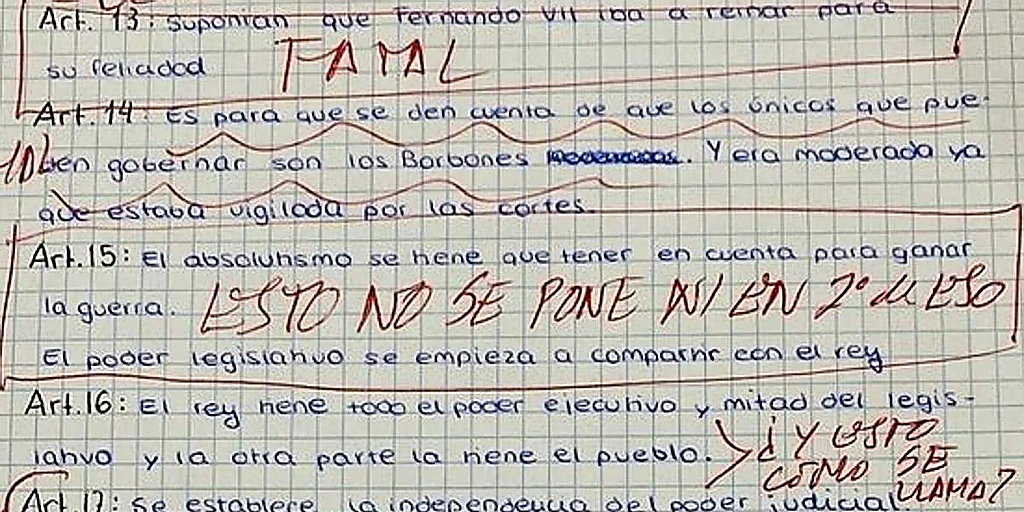 Art. 13: suponían que Fernando VII iba a reinar para
su felicidad
FATAL
Art. 14: Es para que se den cuenta de que los únicos que pue-
den gobernar son los Borbones. Y era moderada ya
que estaba vigilada por las cortes.
Art. 15: El absolutismo se tiene que tener en cuenta para ganar
la guerra. ESTO NO SE PONE NI EN 2º de ESO
El poder legislativo se empieza a compartir con el rey
Art. 16: El rey tiene todo el poder ejecutivo y mitad del legis-
lativo y la otra parte la tiene el pueblo.
¿Y ESTO
CÓMO SE
LLAMA?
Art. 17: Se establece la independencia del poder judicial.